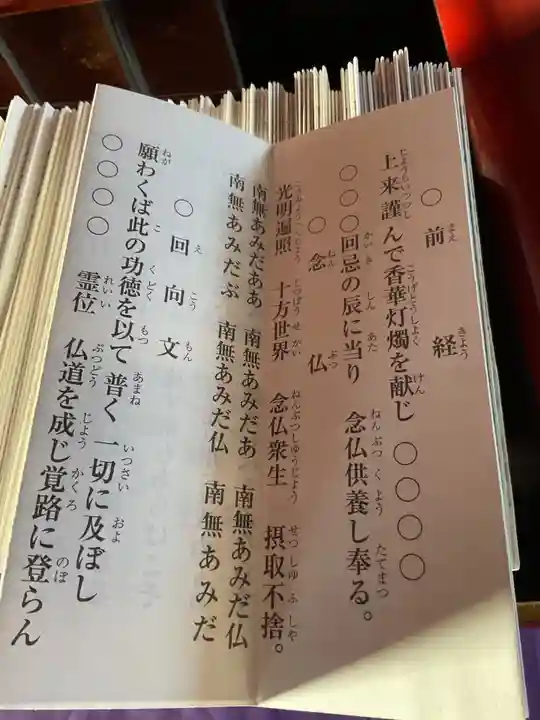 ○前経
上来謹んで香華灯燭を献じ ○○○○
○○○回忌の辰に当り 念仏供養し奉る。
○念仏
光明遍照 十方世界 念仏衆生 摂取不捨。
南無あみだあぁ 南無あみだあ 南無あみだ仏
南無あみだぶ 南無あみだ仏 南無あみだ
○回向文
願わくば此の功徳を以て 普く一切に及ぼし
○○○○ 霊位 仏道を成じ覚路に登らん